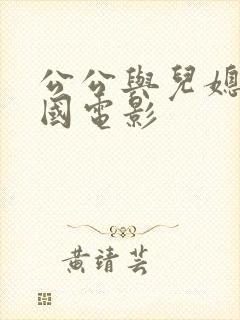 公公與兒媳
國電影
黃靖芸